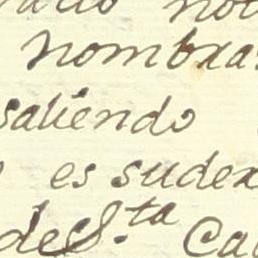 nombra
saliendo
es sudex
de S.ta Ca